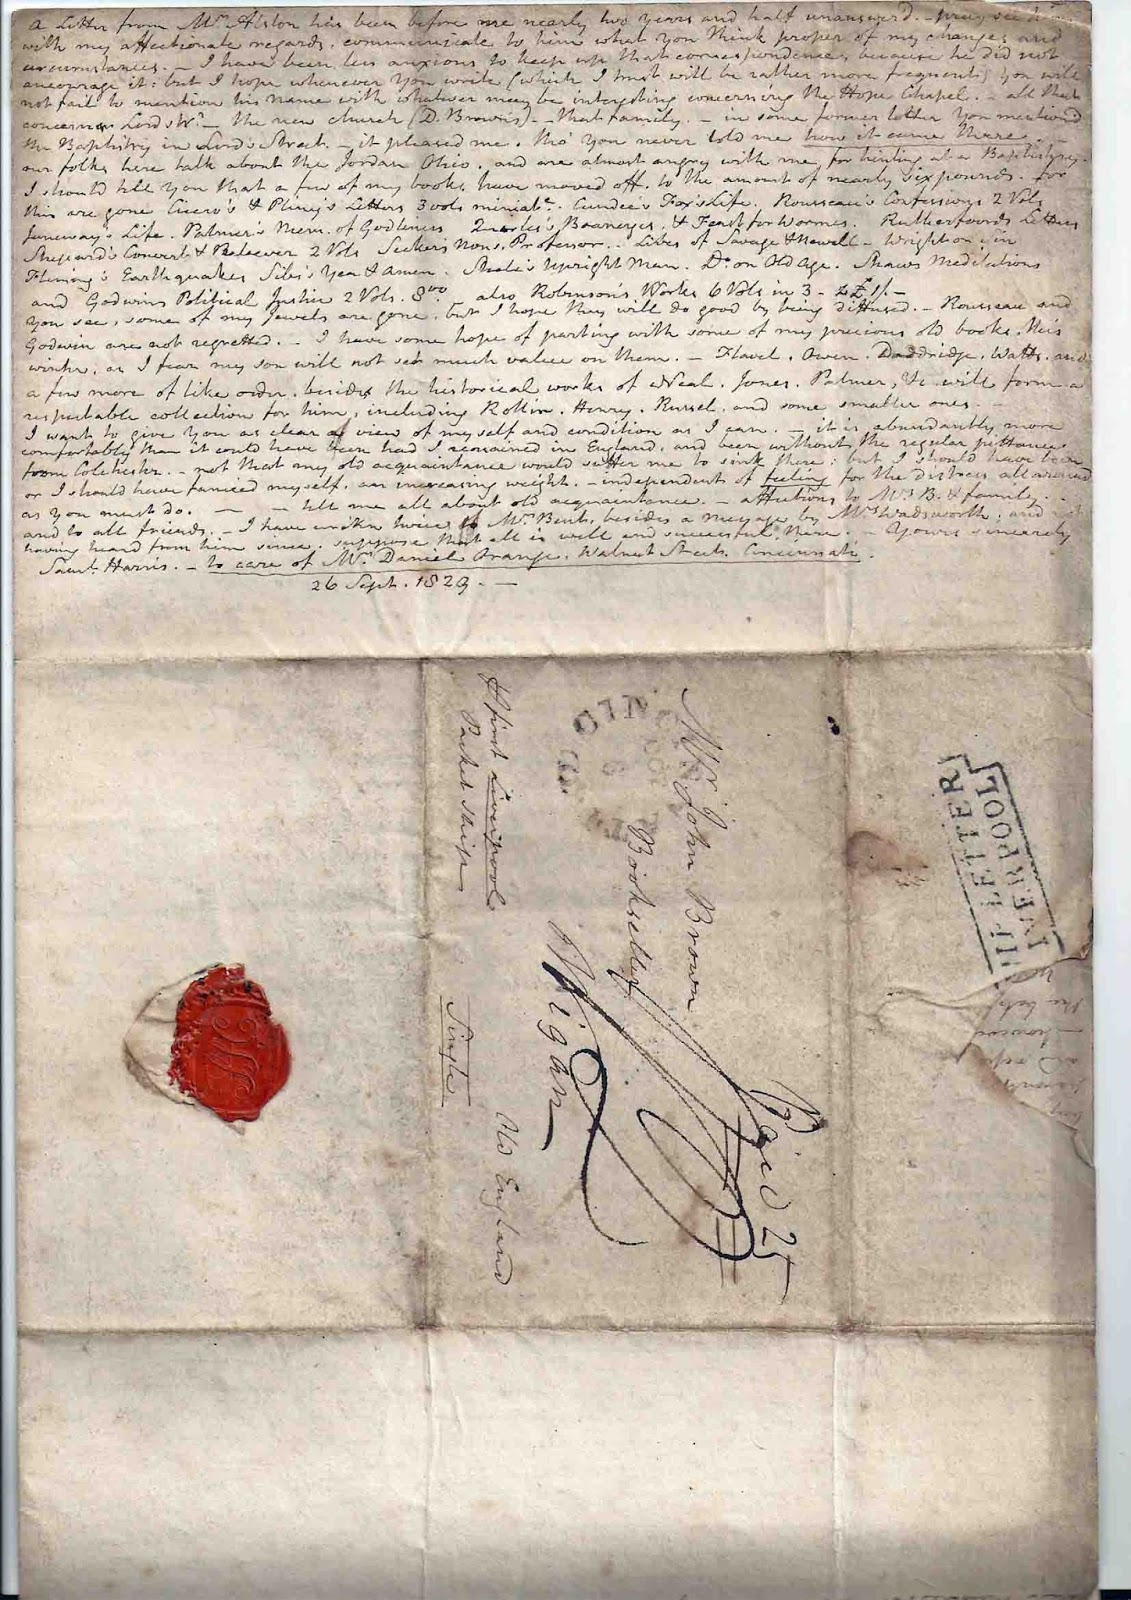 A Letter from Mr. Alston has been before me nearly two years and half unanswerd. - pray see him
with my affectionate regards, communicate to him what you think proper of my changes and
circumstances. - I have been less anxious to keep up that correspondence, because he did not
encourage it: but I hope whenever you write (which I trust will be rather more frequent) you will
not fail to mention his name with whatever may be interesting concerning the Hope Chapel. - all that
concerns Lord St. - the new church (D. Brown's) - that family. - in some former letter you mentiond
the Baptistry in Lord's Street - it pleased me, tho' you never told me how it came there. -
our folks here talk about the Jordan Ohio, and are almost angry with me, for hinting at a Baptistry.
I should tell you that a few of my books have moved off, to the amount of nearly six pounds. for
this are gone Cicero's & Pliny's Letters 3 vols miniate. Cundee's Fox's Life. Rousseau's Confessions 2 Vols
Janeway's Life. Palmer's Mem. of Godliness Quarles's Boanerges, & Feast for Wormes. Rutherfoord's Letters
Shepard's Convert & Believer 2 Vols Secker's Nons. Professor. - Lives of Savage & Newell - Wright on Sin
Fleming's Earthquakes Sibs's Yea & Amen. Steele's Upright Man. Do. on Old Age. Shaws Meditations
and Godwins Political Justice 2 Vols. 8vo. - also Robinson's Works 6 Vols in 3 -
you see, some of my Jewels are gone, but I hope they will do good by being diffused. - Rousseau and
Godwin are not regretted. - I have some hope of parting with some of my precious old books, this
winter, as I fear my son will not set much value on them. - Flavel, Owen, Doddridge, Watts, and
a few more of like order, besides the historical works of Neal, Jones, Palmer, &c will form a
respectable collection for him, including Rollin, Henry, Russel, and some smaller ones. -
I want to give you as clear a view of myself and condition as I can. - it is abundantly more
comfortably than it could have been had I remained in England, and been without the regular pittance
from Colchester. - not that my old acquaintance would suffer me to sink there: but I should have been
or I should have fancied myself, an increasing weight. - independent of feeling for the distress all around
as you must do. - - tell me all about old acquaintance. - affections to Mrs B. & family.
and to all friends. - I have written twice to Mr. Bent, besides a message by Mr Wadsworth, and not
having heard from him since, suppose that all is well and successful there. - Yours sincerely
Saml. Harris. - to care of Mr. Daniel Orange, Walnut Street, Cincinnati.
26 Sept. 1829. -
SHIP LETTER
LIVERPOOL
Paid 25
Mr. John Brown
Bookseller
Wigan
Old England
first Liverpool
Packet Ship
Single